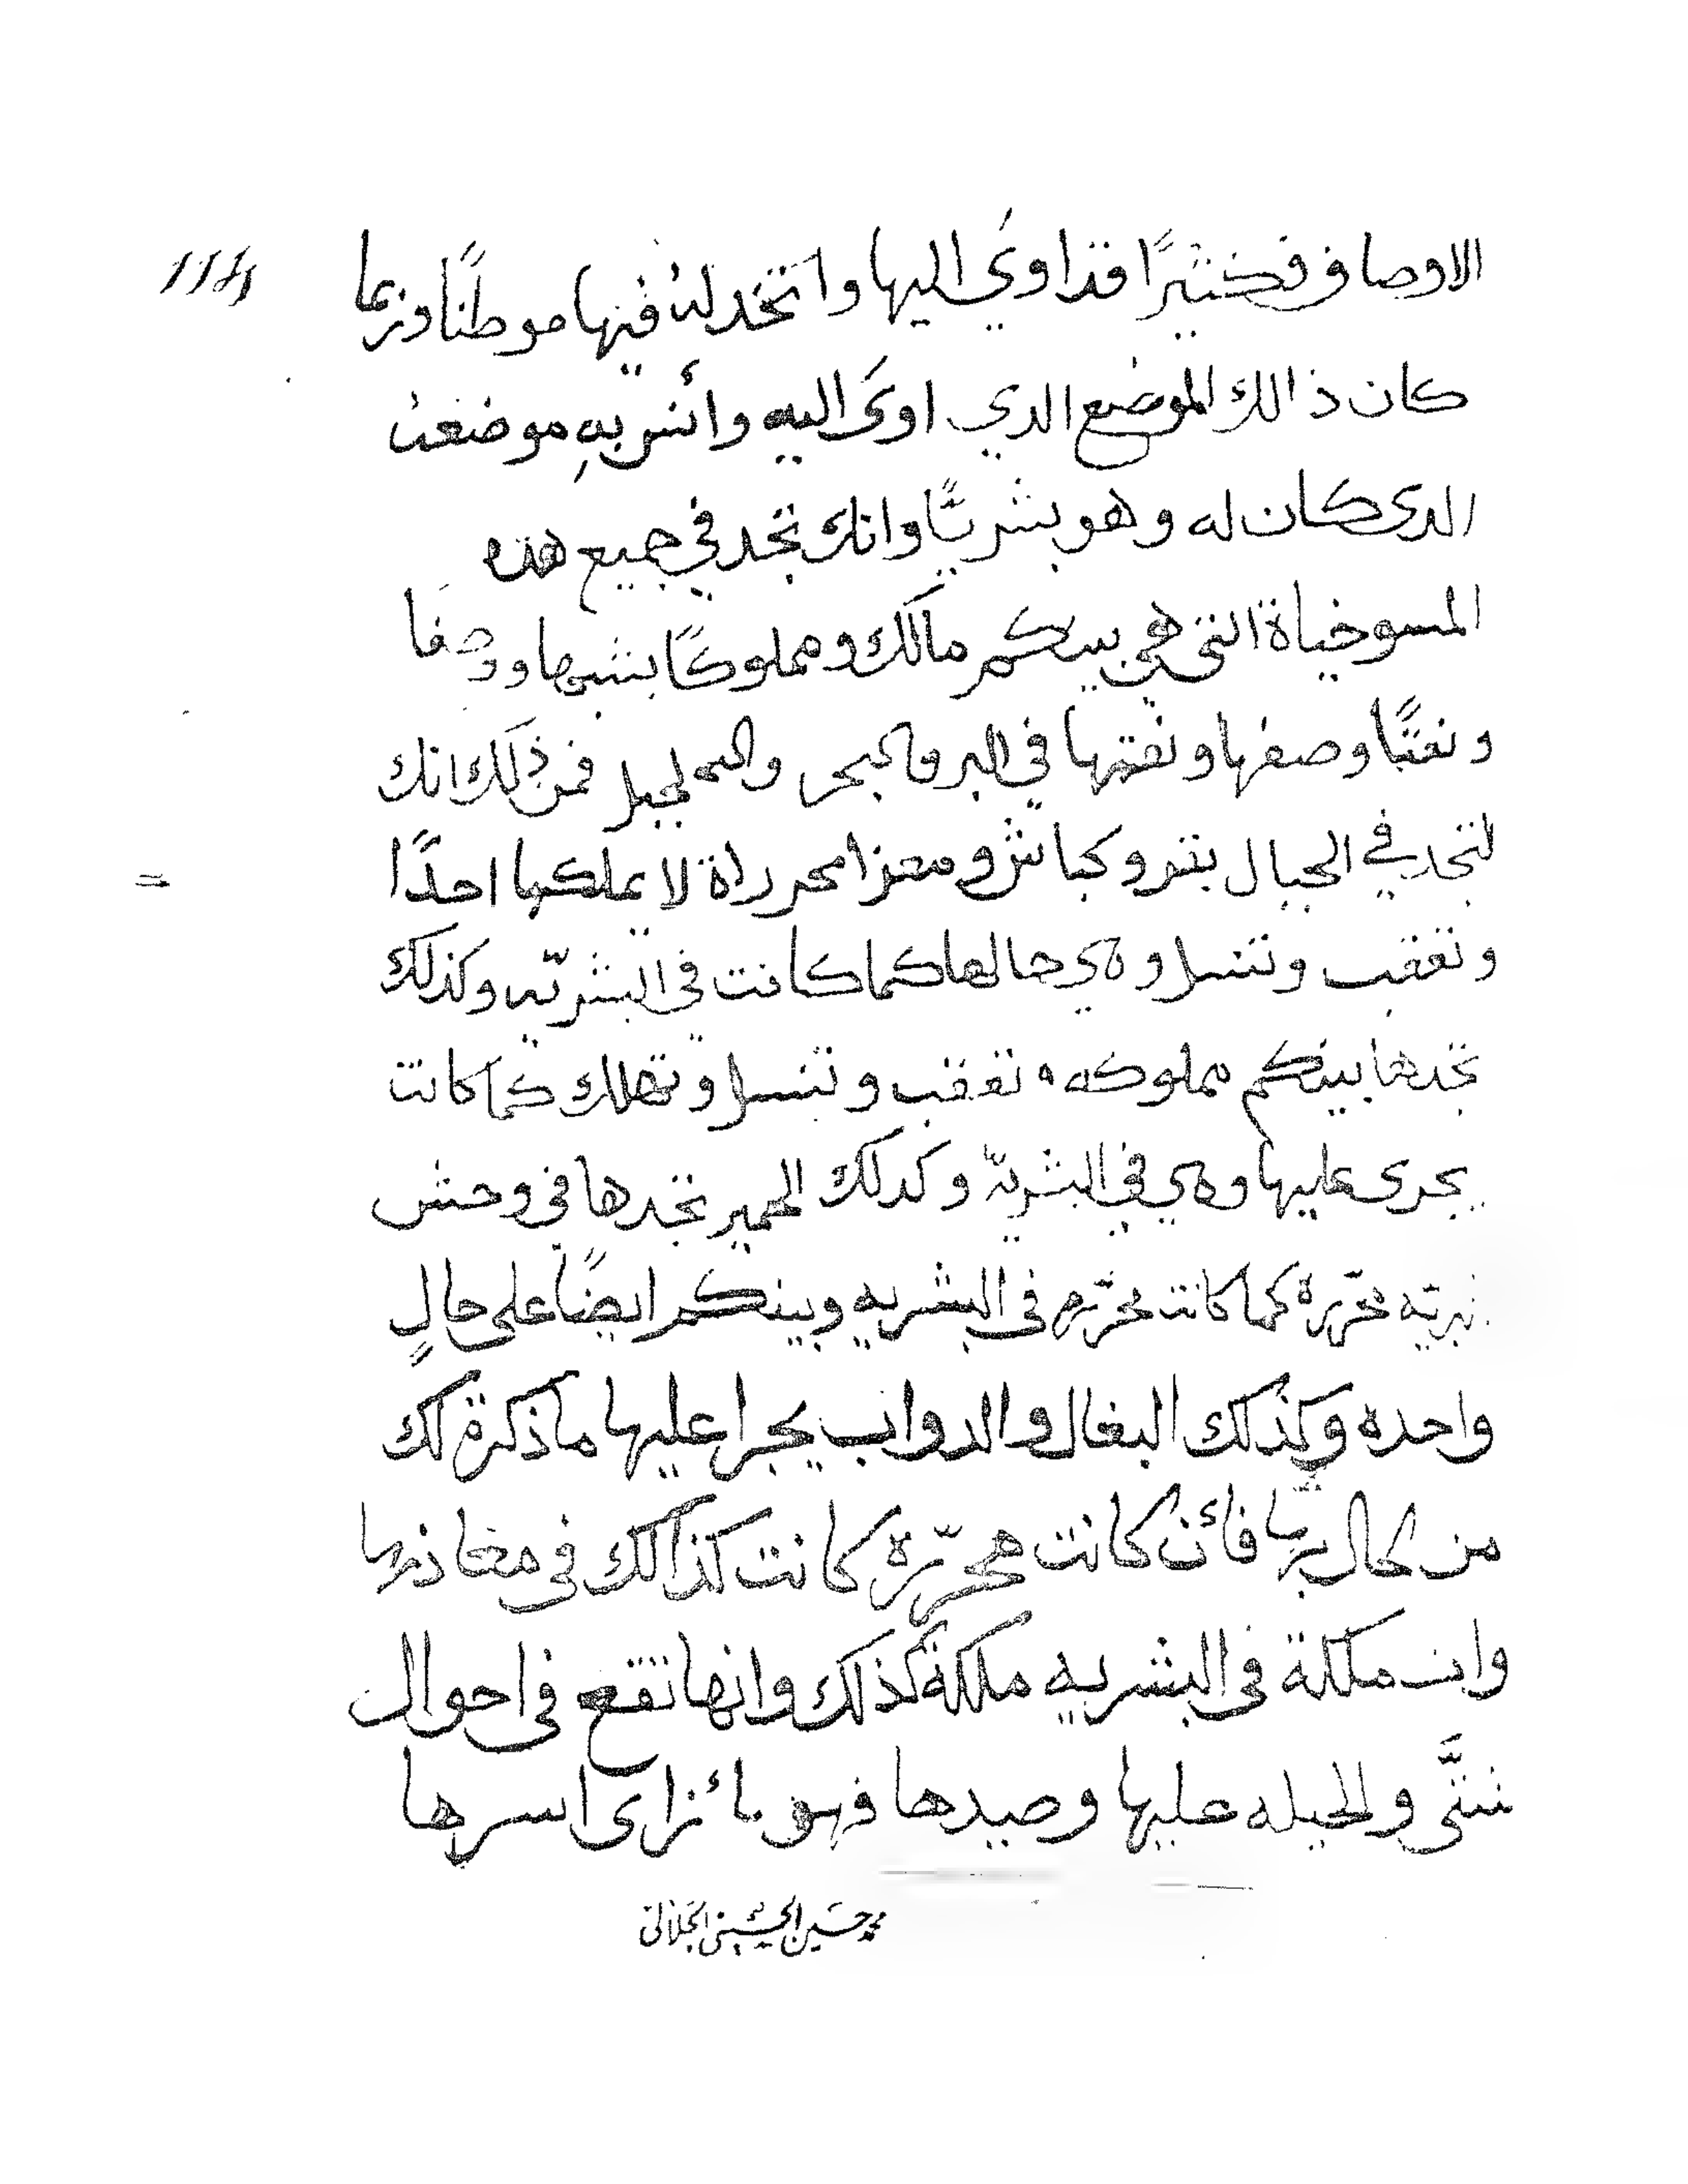 الاوصاف فكثيرًا قد اوي اليها واتخد له فيها موطنًا وربما
كان ذالك الموضع الدي اوى اليه وأنس بهِ موضعه
الدى كان له وهو بشريًّا وانك تجد في جميع هده
المسوخياة التي هي بينكم مالك ومملوكًا بشبهها ووصفا
ونعتًا وصفها ونعتها في البر والبحر والجبل فمن ذلك انك
لتجد في الجبال بقر وكباش ومعزا محرراة لا يملكها احدًا
وتعقب وتنسل وهي حالها كما كانت في البشريّه وكذلك
تجدها بينكم مملوكه تعقب وتنسل وتهلك كما كانت
يجرى عليها وهي في البشريّه وكدلك الحمير تجدها في وحش
البريّه محرّرة كما كانت محرّره في البشريه وبينكم ايضًا على حالٍ
واحده وكذلك البغال والدواب يجرا عليها ما ذكرة لك
من حال بريّها فأن كانت محرّرة كانت كذالك في
وان ملكة في البشريه ملكة كذلك وانها تقع في احوال
شتَّى والحيله عليها وصيدها فهو بأزاى اسرها
محمد حسين الحسيني الجلالي